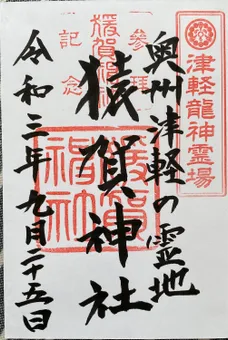 津軽龍神霊場
奥州津軽の霊地
参拝
記念
猿賀神社
猿賀神社
令和三年九月二十五日